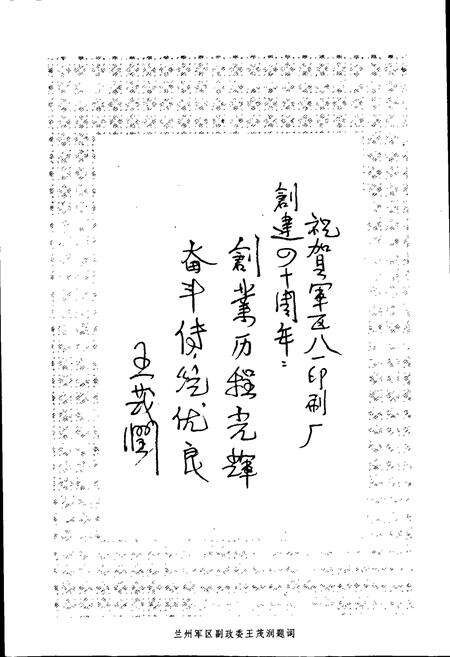 祝賀軍区八一印刷厂
創建四十周年：
創業历程光輝
奋斗传统优良
王茂潤
兰州军区副政委王茂润题词